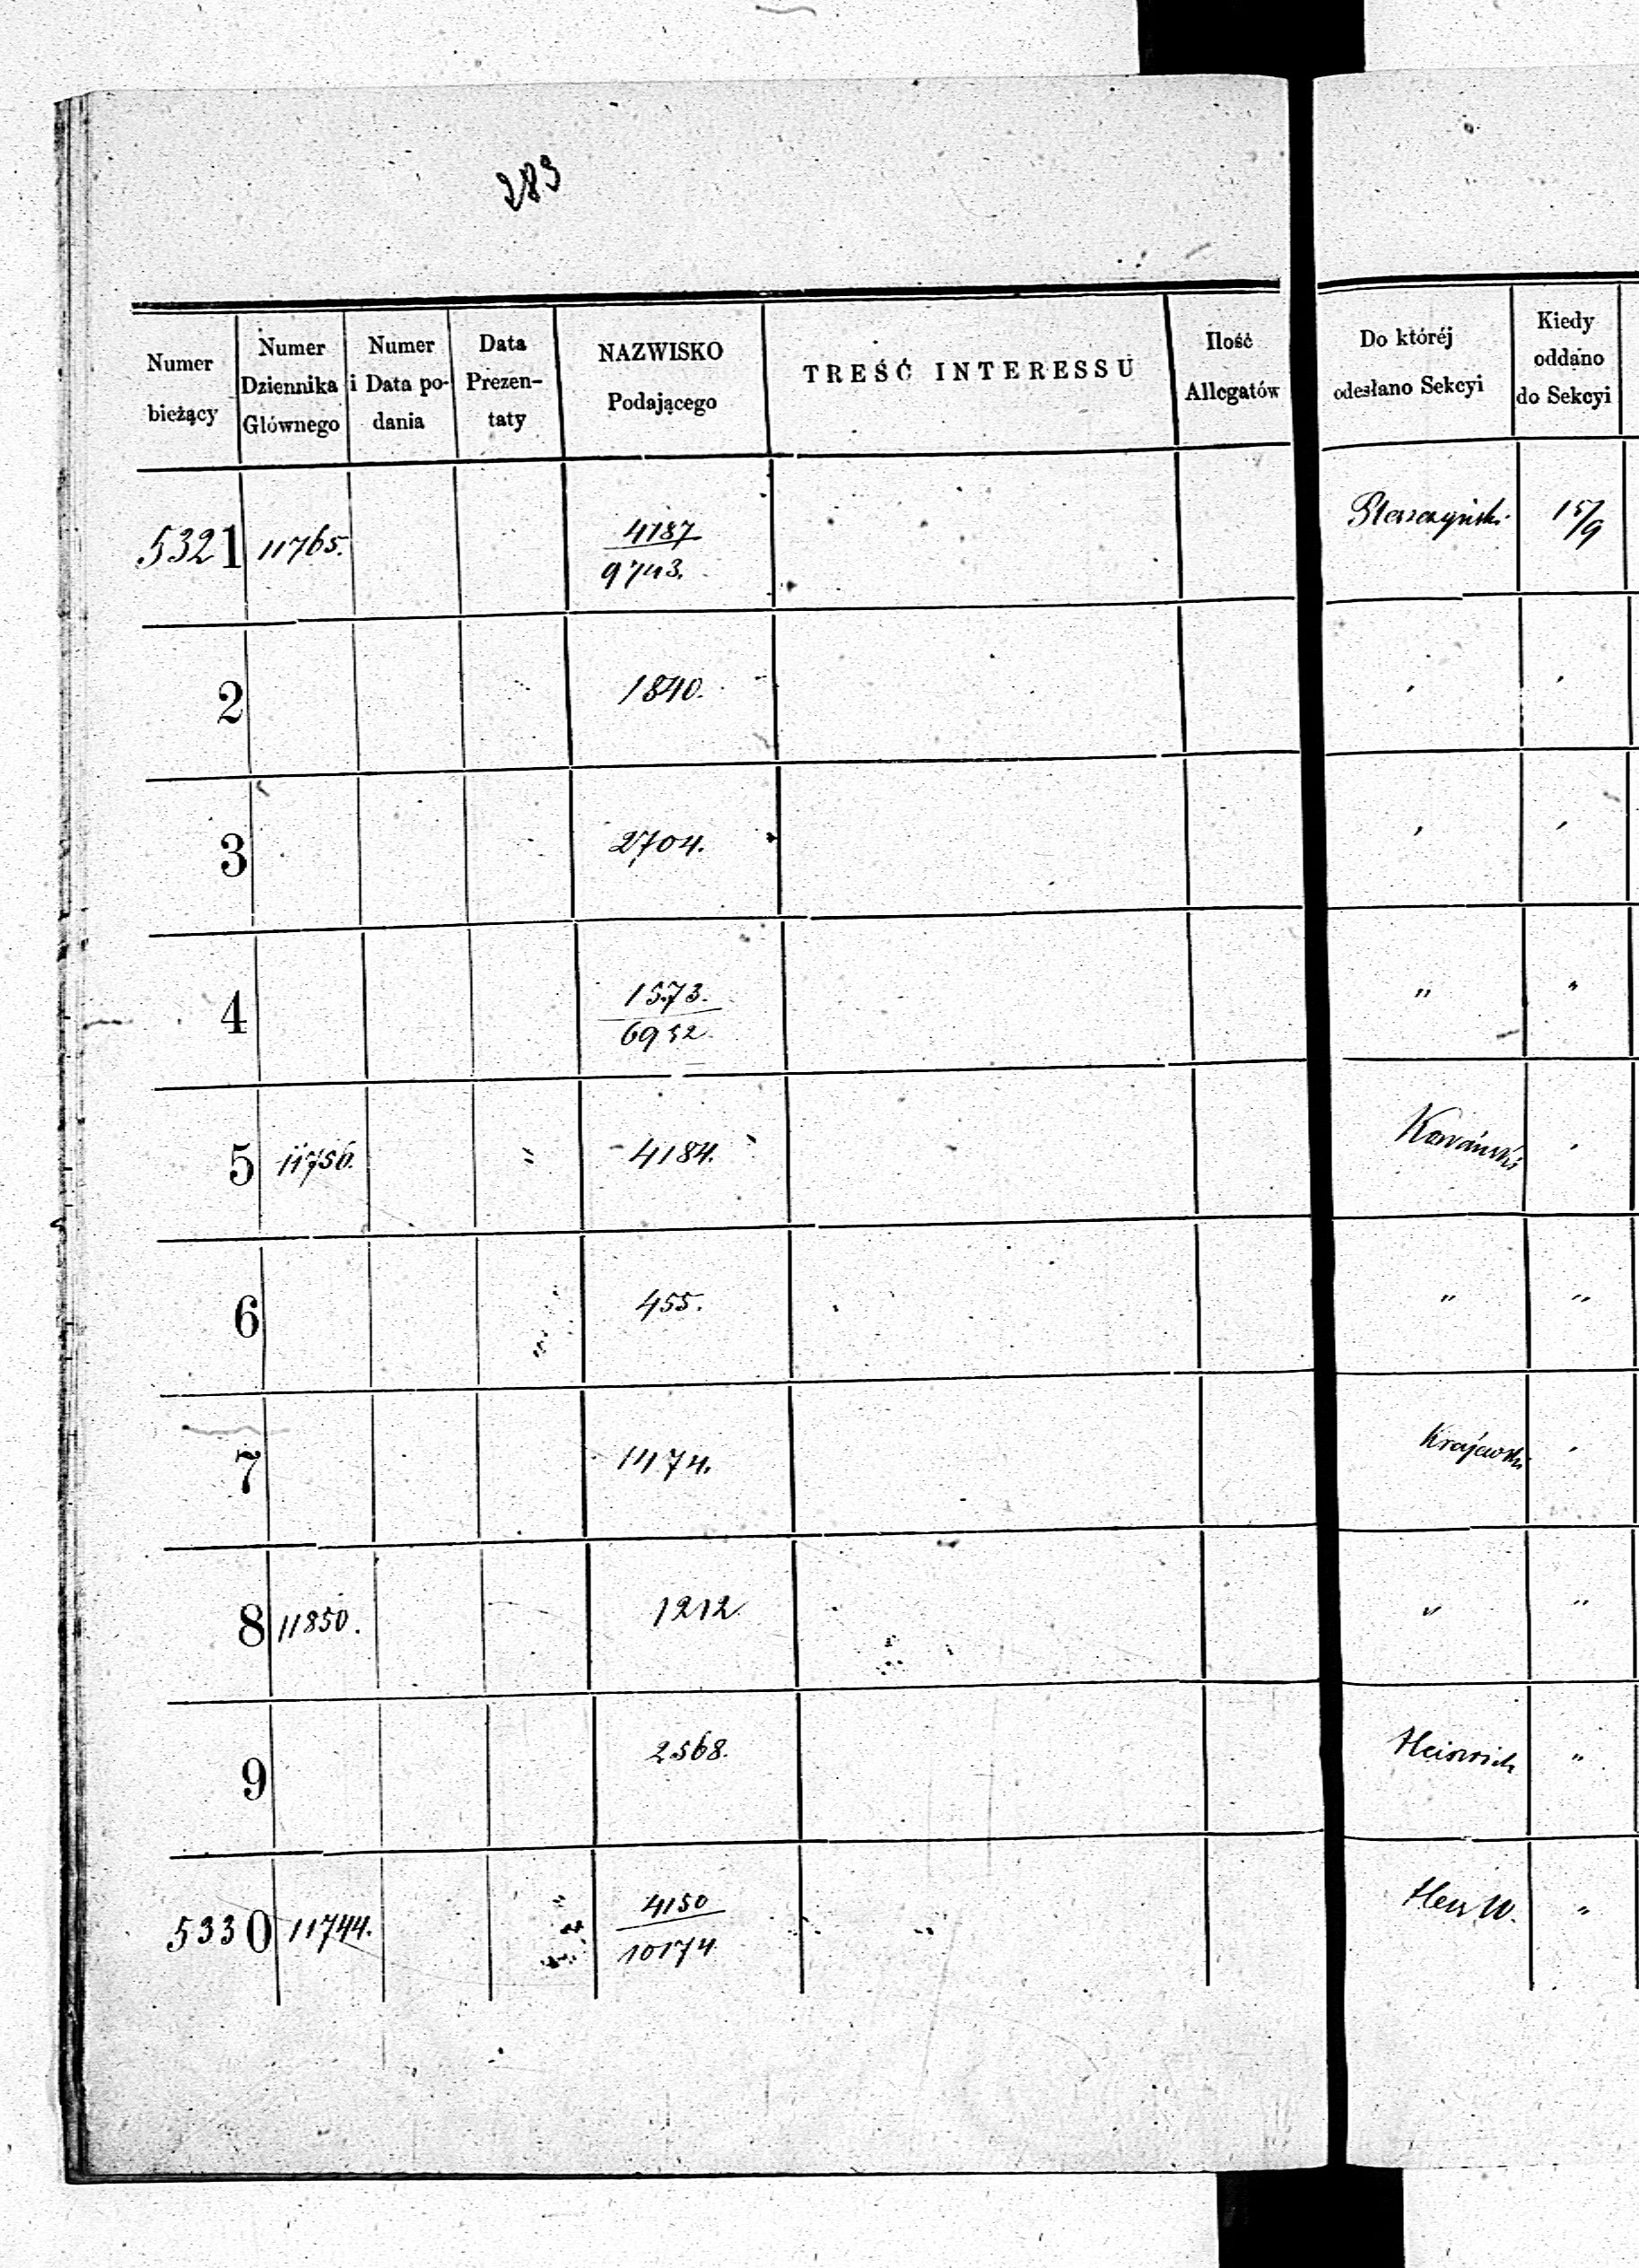 283
Numer bieżący | Numer Dziennika Głównego | Numer i Data podania | Data Prezentaty | NAZWISKO Podającego | TREŚĆ INTERESSU | Ilość Allegatów | Do któréj odesłano Sekcyi | Kiedy oddano do Sekcyi
5321 | 11765. | 4187/9743. | 15/9
2 | 1840. | " | "
3 | 2704. | " | "
4 | 1573./6952. | " | "
5 | 11756. | " | 4184. | "
6 | 455. | " | "
7 | 1174. | Krajewski | "
8 | 11850. | 1212. | " | "
9 | 2568. | Heinrich | "
5330 | 11744. | 4150/10174 | "